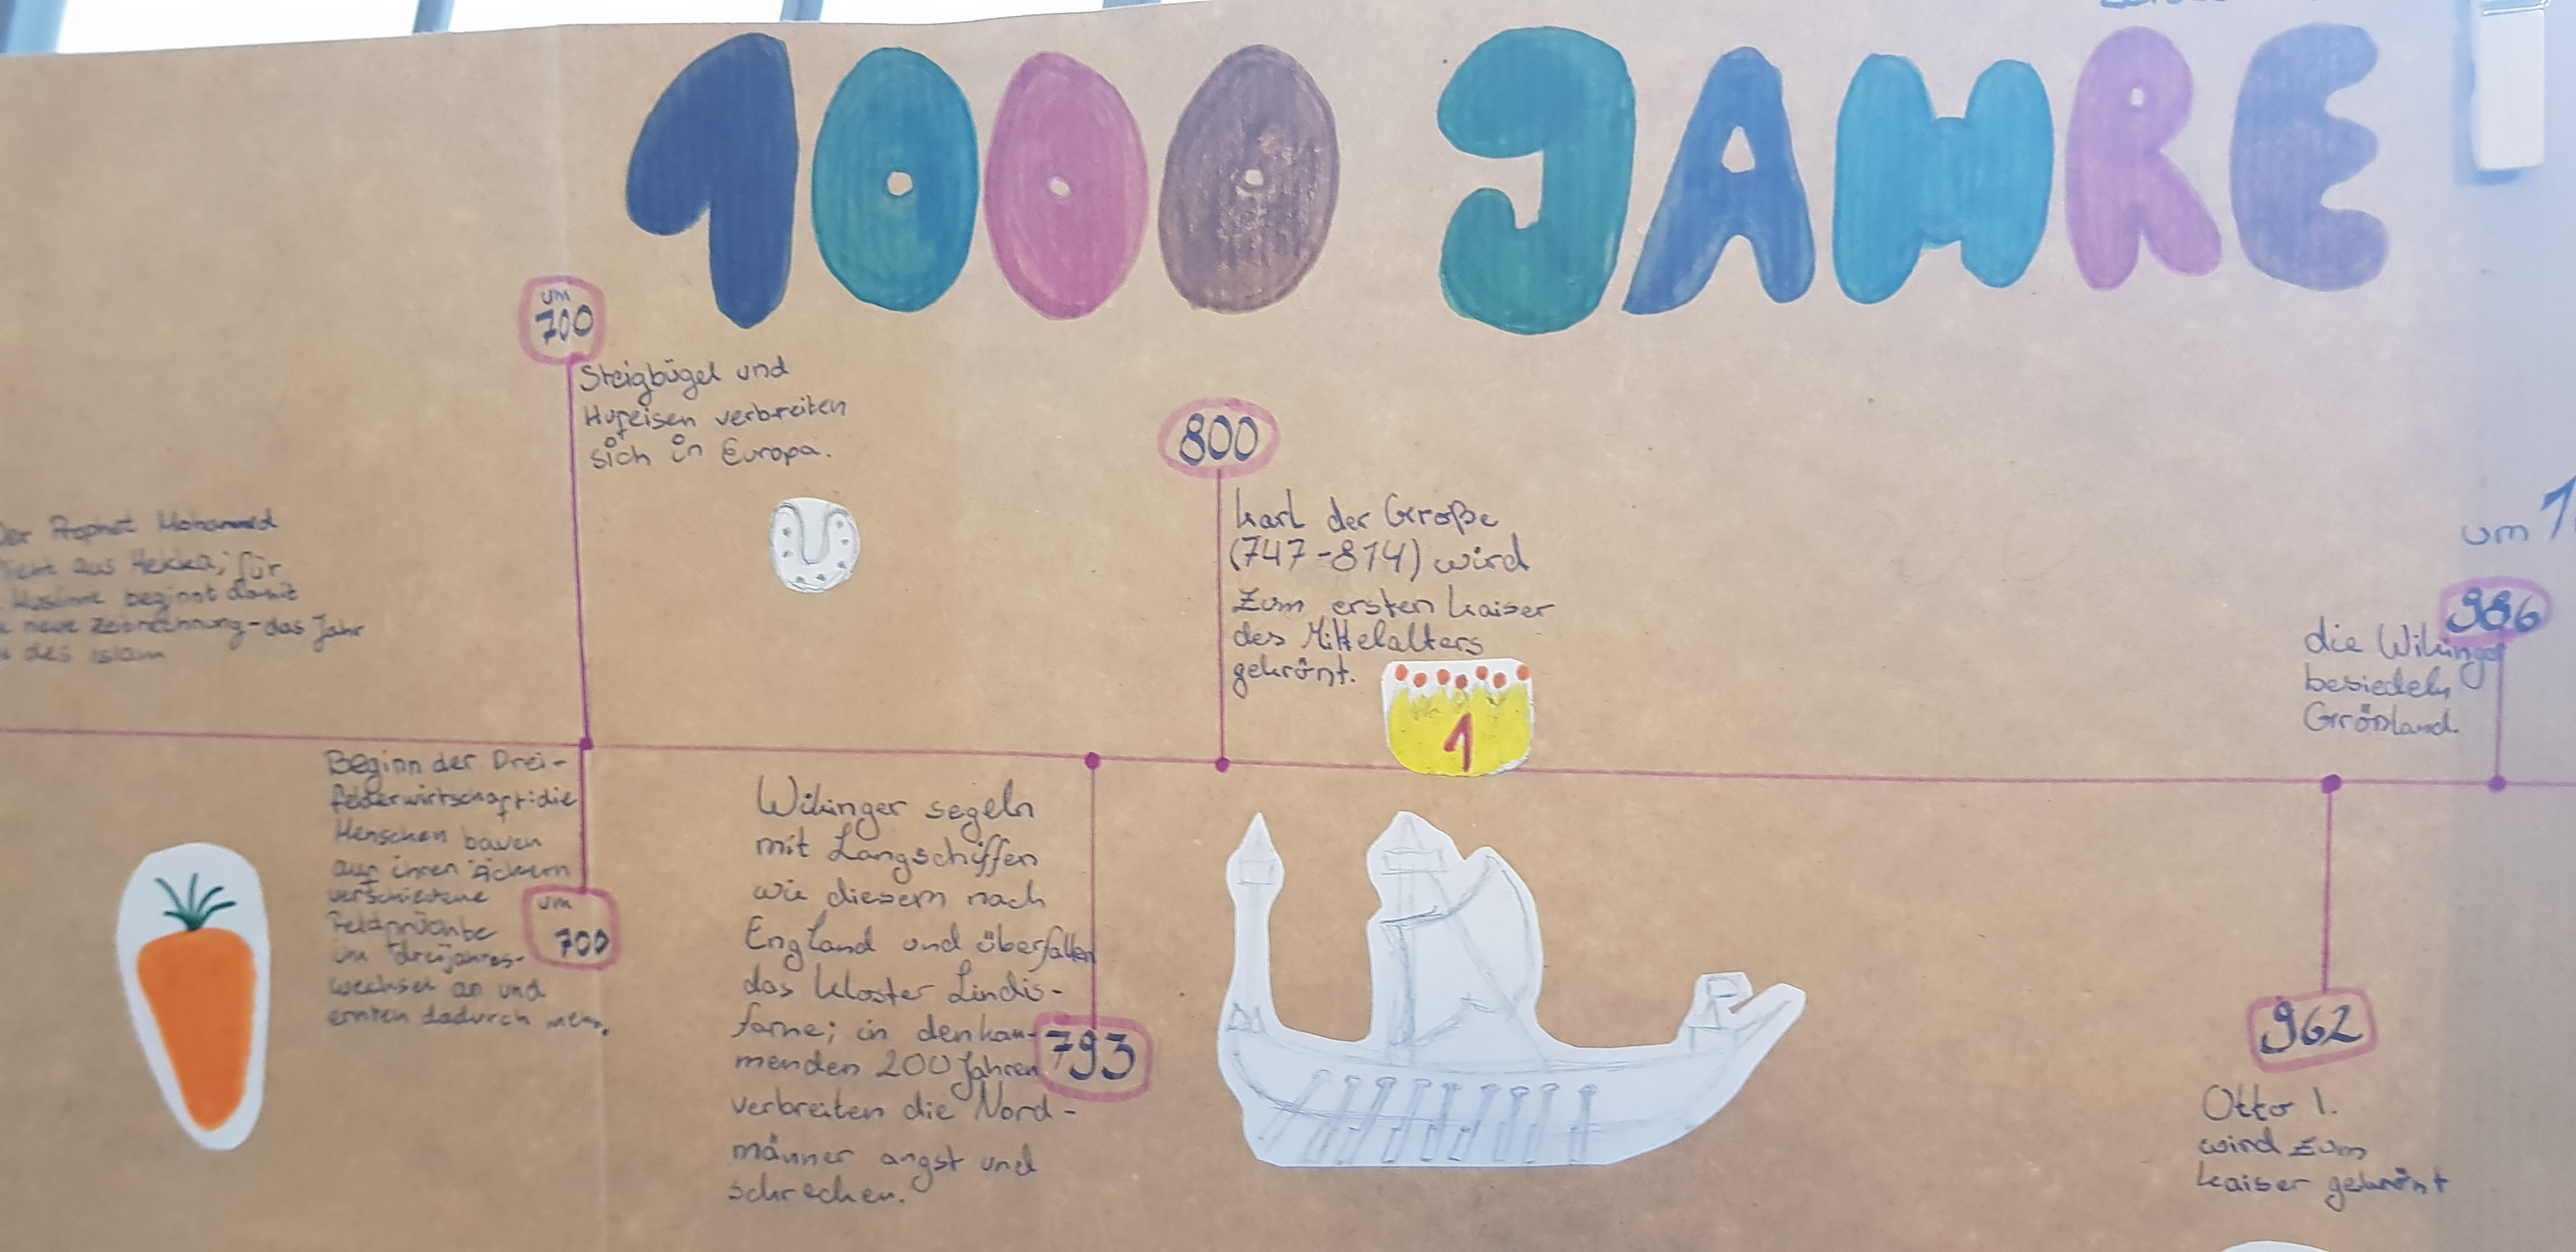 1000 JAHRE
Der Prophet Mohammed
flieht aus Mekka; für
Muslime beginnt damit
neue Zeitrechnung - das Jahr
des Islam
um
700
Steigbügel und
Hufeisen verbreiten
sich in Europa.
Beginn der Drei-
felderwirtschaft: die
Menschen bauen
auf ihren Äckern
verschiedene
Feldfrüchte
im dreijahres-
wechsel an und
ernten dadurch mehr.
um
700
Wikinger segeln
mit Langschiffen
wie diesem nach
England und überfallen
das Kloster Lindis-
farne; in den kom-
menden 200 Jahren
verbreiten die Nord-
männer angst und
schrecken.
793
800
Karl der Große
(747-814) wird
zum ersten Kaiser
des Mittelalters
gekrönt.
1
962
Otto I.
wird zum
Kaiser gekrönt
986
die Wikinger
besiedeln
Grönland.
um 1